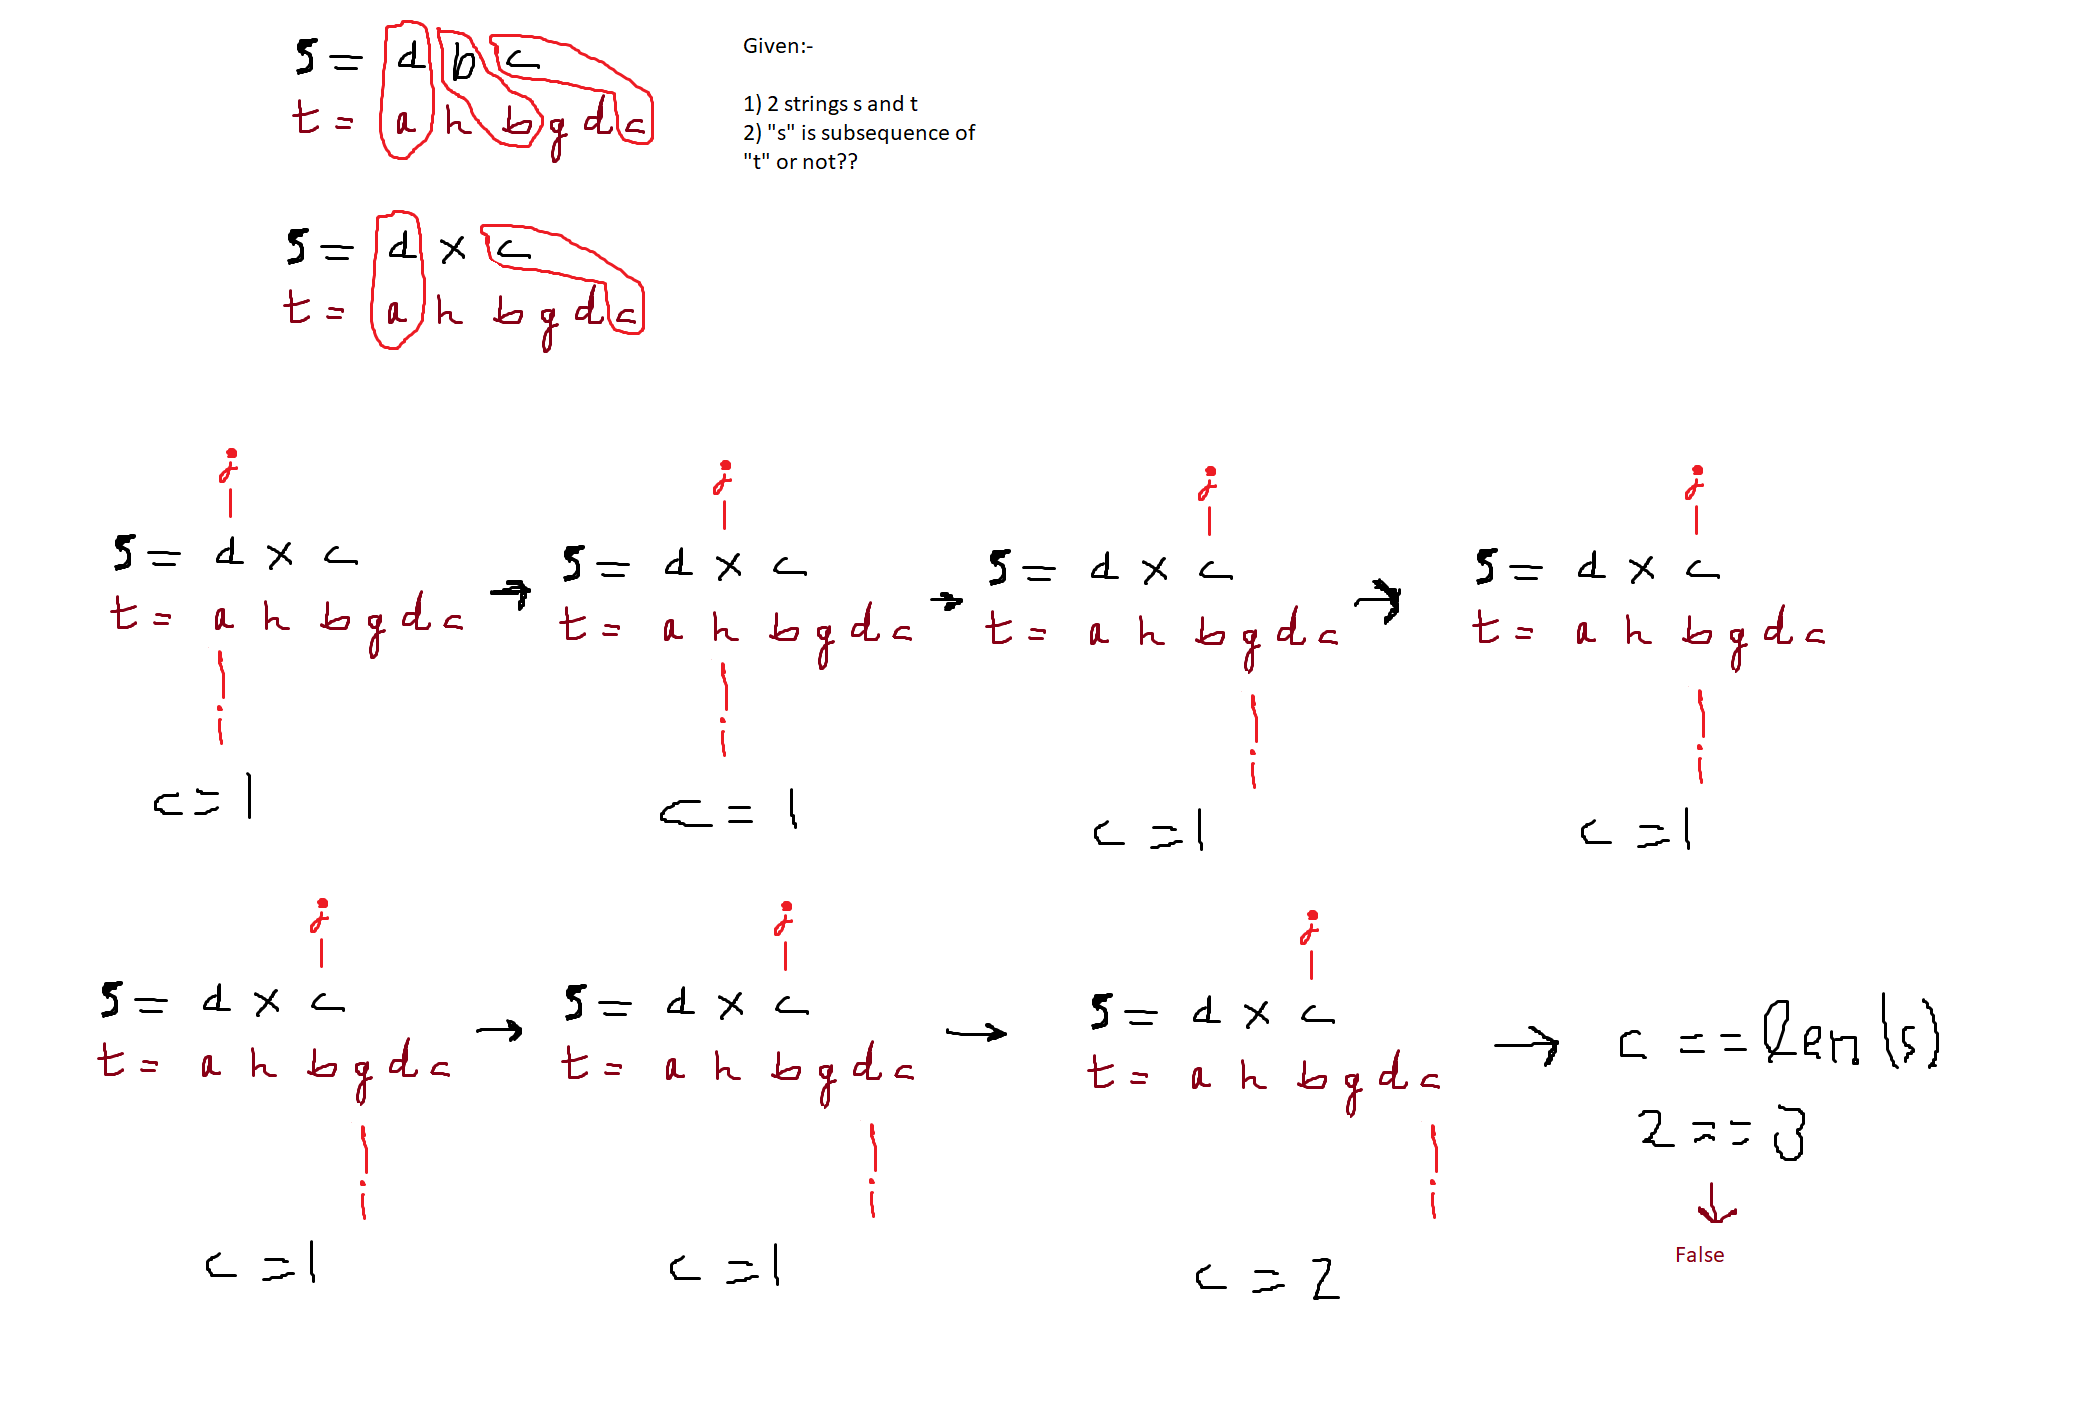 s = d b c
t = a h b g d c
Given:-
1) 2 strings s and t
2) "s" is subsequence of
"t" or not??
s = d x c
t = a h b g d c
j
s = d x c
t = a h b g d c
i
c = 1
j
s = d x c
t = a h b g d c
i
c = 1
j
s = d x c
t = a h b g d c
i
c = 1
j
s = d x c
t = a h b g d c
i
c = 1
j
s = d x c
t = a h b g d c
i
c = 1
j
s = d x c
t = a h b g d c
i
c = 1
j
s = d x c
t = a h b g d c
i
c = 2
c == len(s)
2 == 3
False